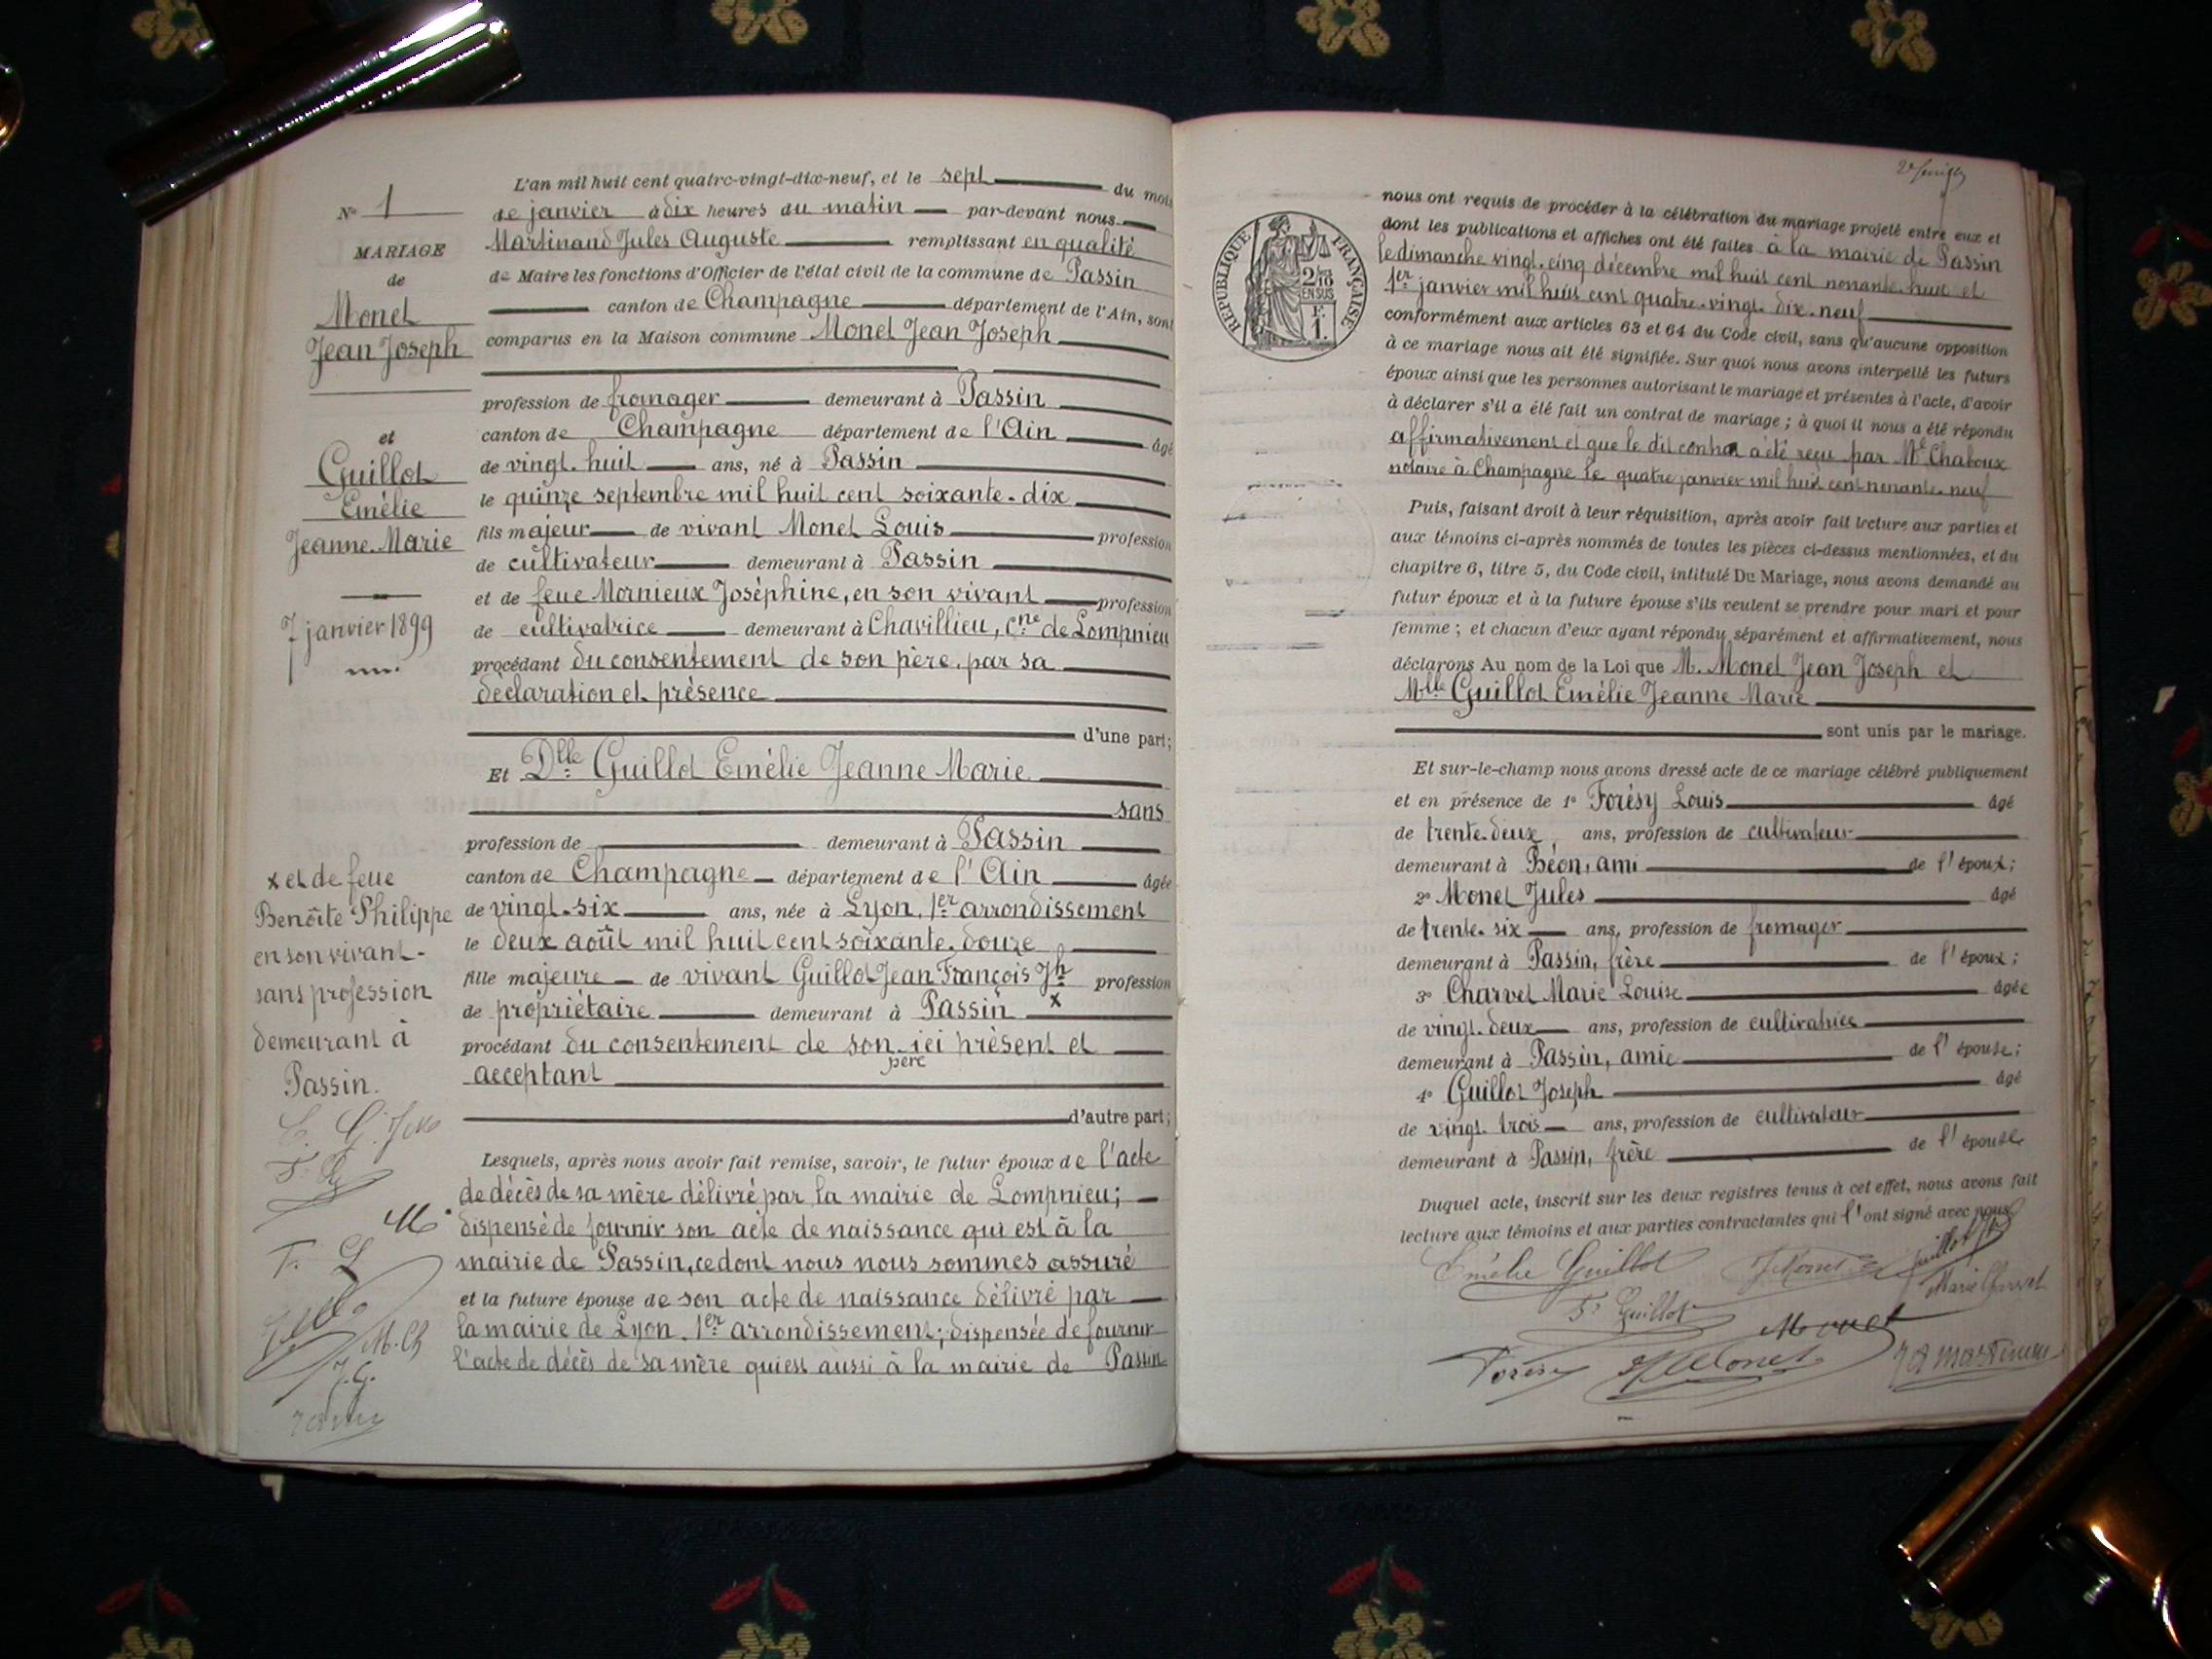 L'an mil huit cent quatre-vingt-dix-neuf, et le sept du mois
N° 1
de janvier à dix heures du matin par-devant nous
Martinand Jules Auguste remplissant en qualité
MARIAGE
de Maire les fonctions d'Officier de l'état civil de la commune de Passin
de
canton de Champagne département de l'Ain, sont
Monet
comparus en la Maison commune Monet Jean Joseph
Jean Joseph
profession de fromager demeurant à Passin
et
canton de Champagne département de l'Ain âgé
Guillot
de vingt-huit ans, né à Passin
Emélie
le quinze septembre mil huit cent soixante-dix
Jeanne-Marie
fils majeur de vivant Monet Louis profession
de cultivateur demeurant à Passin
et de feue Mornieux Joséphine, en son vivant profession
7 janvier 1899
de cultivatrice demeurant à Chavillieu, Cne de Lompnieu
procédant du consentement de son père, par sa
déclaration et présence
d'une part;
Et Dlle Guillot Emélie Jeanne Marie
sans
profession de demeurant à Passin
canton de Champagne département de l'Ain âgée
de vingt-six ans, née à Lyon, 1er arrondissement
le deux août mil huit cent soixante-douze
fille majeure de vivant Guillot Jean François Jh x profession
de propriétaire demeurant à Passin
procédant du consentement de son père ici présent et
acceptant
d'autre part;
x et de feue
Benôite Philippe
en son vivant
sans profession
demeurant à
Passin.
Lesquels, après nous avoir fait remise, savoir, le futur époux de l'acte
de décès de sa mère délivré par la mairie de Lompnieu;
dispensé de fournir son acte de naissance qui est à la
mairie de Passin, ce dont nous nous sommes assuré
et la future épouse de son acte de naissance délivré par
la mairie de Lyon, 1er arrondissement; dispensée de fournir
l'acte de décès de sa mère qui est aussi à la mairie de Passin
E. G.
M
F. L
M. Ch
J. G.
RÉPUBLIQUE FRANÇAISE
2/10
EN SUS
F.
1.
nous ont requis de procéder à la célébration du mariage projeté entre eux et
dont les publications et affiches ont été faites à la mairie de Passin
le dimanche vingt-cinq décembre mil huit cent nonante-huit et
1er janvier mil huit cent quatre-vingt-dix-neuf
conformément aux articles 63 et 64 du Code civil, sans qu'aucune opposition
à ce mariage nous ait été signifiée. Sur quoi nous avons interpellé les futurs
époux ainsi que les personnes autorisant le mariage et présentes à l'acte, d'avoir
à déclarer s'il a été fait un contrat de mariage; à quoi il nous a été répondu
affirmativement et que le dit contrat a été reçu par Me Chaboux
notaire à Champagne le quatre janvier mil huit cent nonante-neuf
Puis, faisant droit à leur réquisition, après avoir fait lecture aux parties et
aux témoins ci-après nommés de toutes les pièces ci-dessus mentionnées, et du
chapitre 6, titre 5, du Code civil, intitulé Du Mariage, nous avons demandé au
futur époux et à la future épouse s'ils veulent se prendre pour mari et pour
femme; et chacun d'eux ayant répondu séparément et affirmativement, nous
déclarons Au nom de la Loi que M. Monet Jean Joseph et
Mlle Guillot Emélie Jeanne Marie
sont unis par le mariage.
Et sur-le-champ nous avons dressé acte de ce mariage célébré publiquement
et en présence de 1° Forésy Louis âgé
de trente-deux ans, profession de cultivateur
demeurant à Béon, ami de l'époux;
2° Monet Jules âgé
de trente-six ans, profession de fromager
demeurant à Passin, frère de l'époux;
3° Charvet Marie Louise âgée
de vingt-deux ans, profession de cultivatrice
demeurant à Passin, amie de l'épouse;
4° Guillot Joseph âgé
de vingt-trois ans, profession de cultivateur
demeurant à Passin, frère de l'épouse
Duquel acte, inscrit sur les deux registres tenus à cet effet, nous avons fait
lecture aux témoins et aux parties contractantes qui l'ont signé avec nous
Emélie Guillot J Monet Guillot
Marie Charvet
Fs Guillot Monet
Forésy Monet J A Martinand